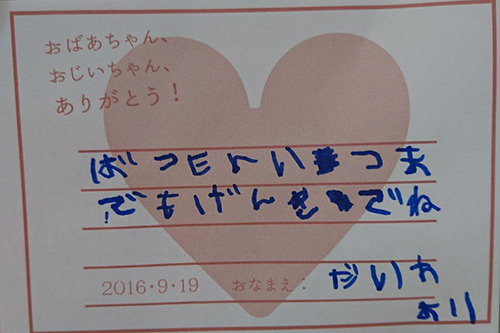 おばあちゃん、
おじいちゃん、
ありがとう!
いつま
でもげんきでね
2016・9・19 おなまえ:
より